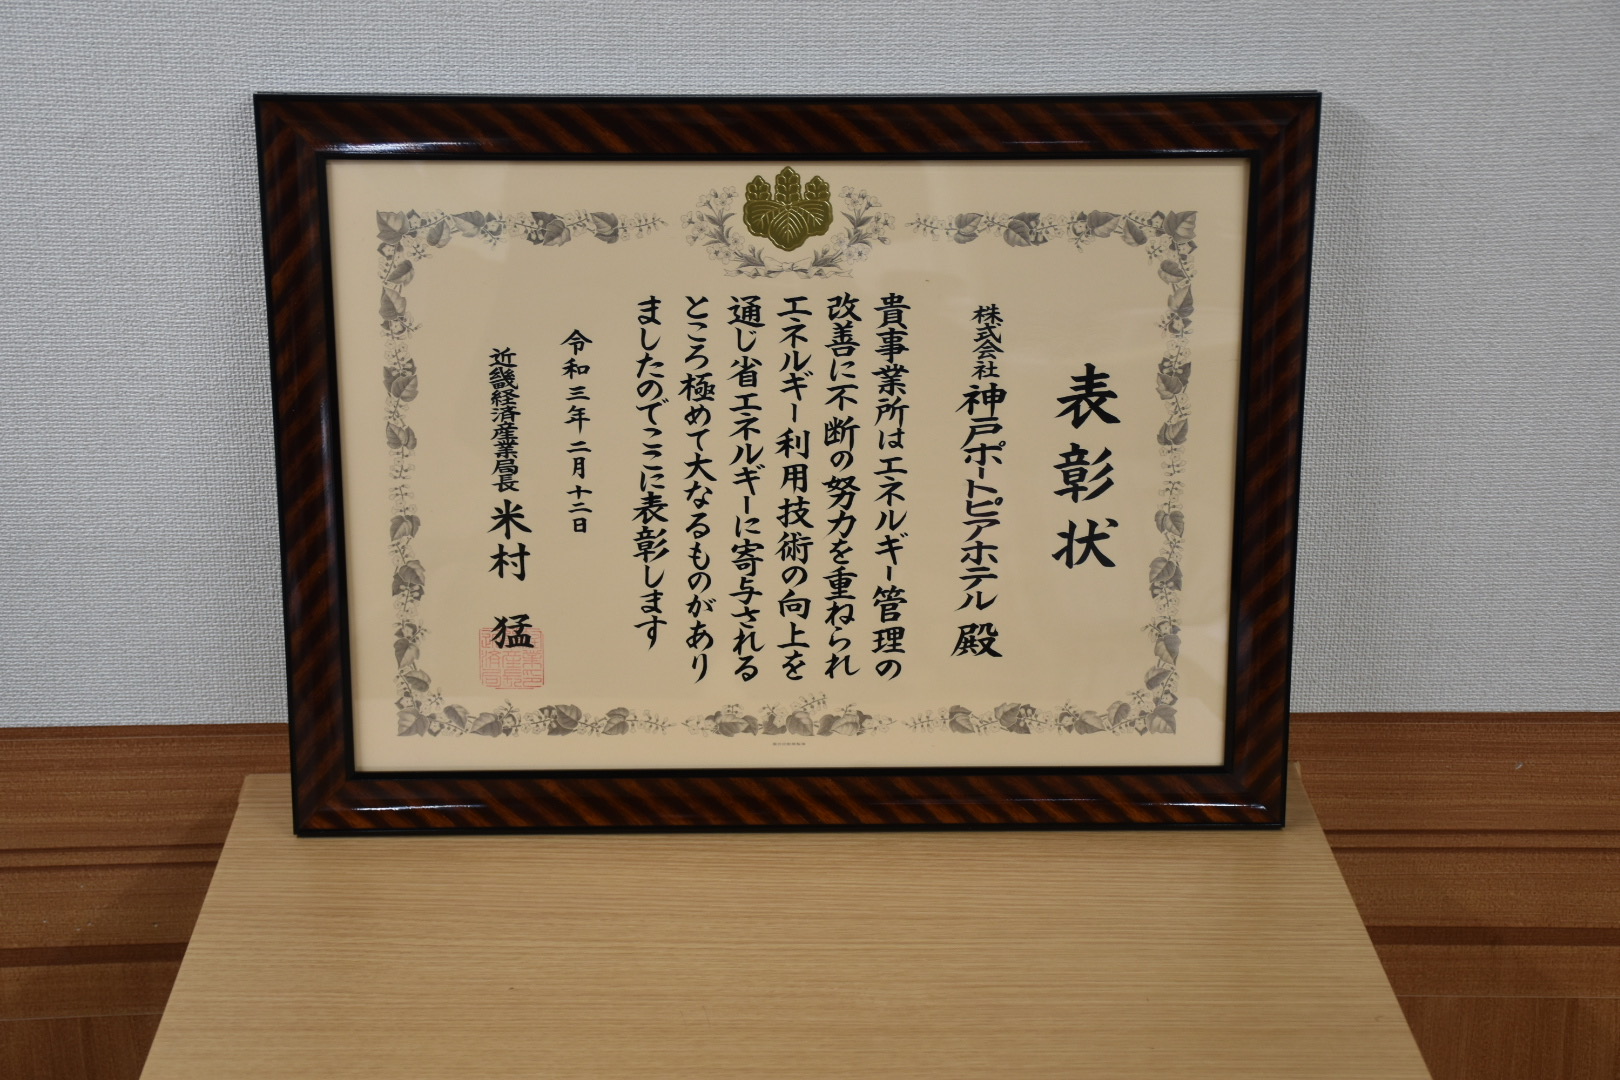 表彰状
株式会社神戸ポートピアホテル殿
貴事業所はエネルギー管理の
改善に不断の努力を重ねられ
エネルギー利用技術の向上を
通じ省エネルギーに寄与される
ところ極めて大なるものがあり
ましたのでここに表彰します
令和三年二月十二日
近畿経済産業局長 米村 猛